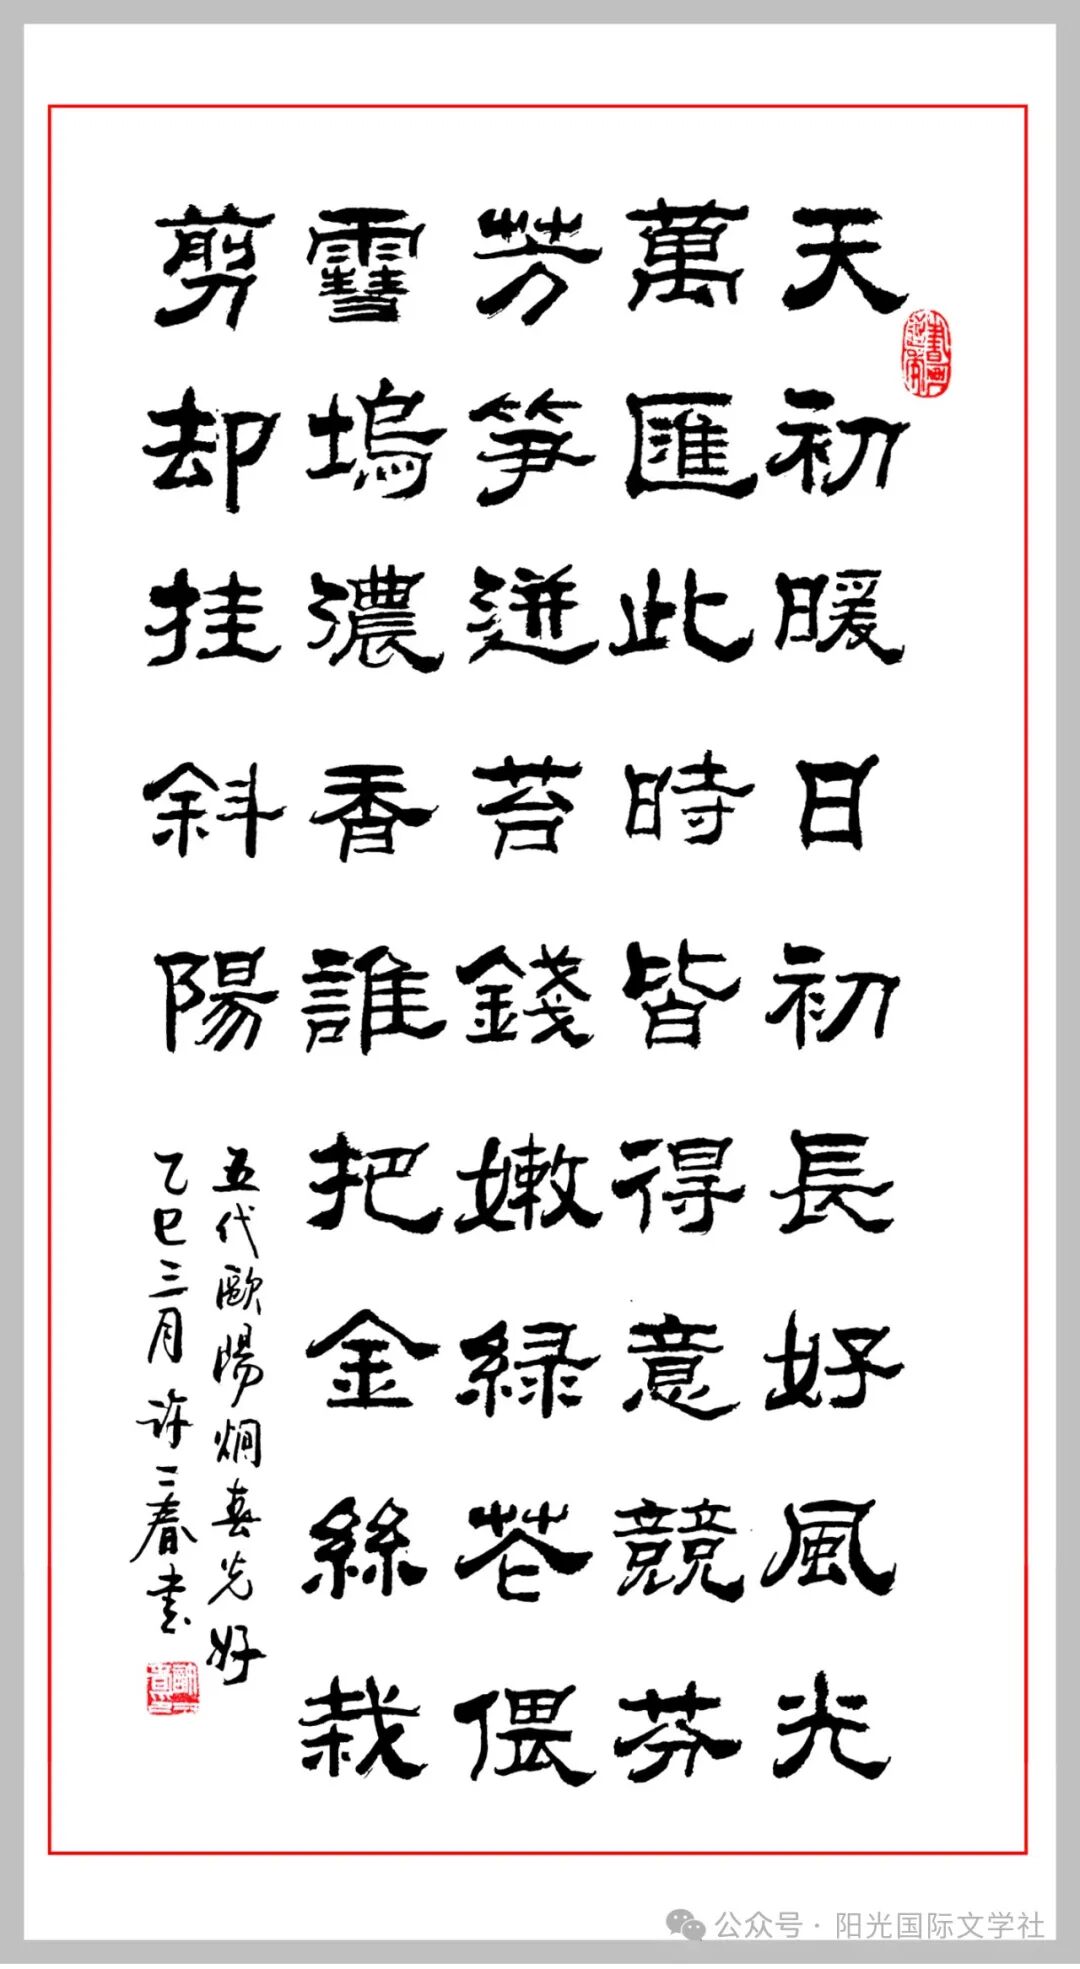 天初暖日初長好風光
萬匯此時皆得意競芬
芳笋迸苔錢嫩綠花偎
雪塢濃香誰把金絲栽
剪却挂斜陽
五代歐陽炯春光好
乙巳三月許二春書
公众号·阳光国际文学社